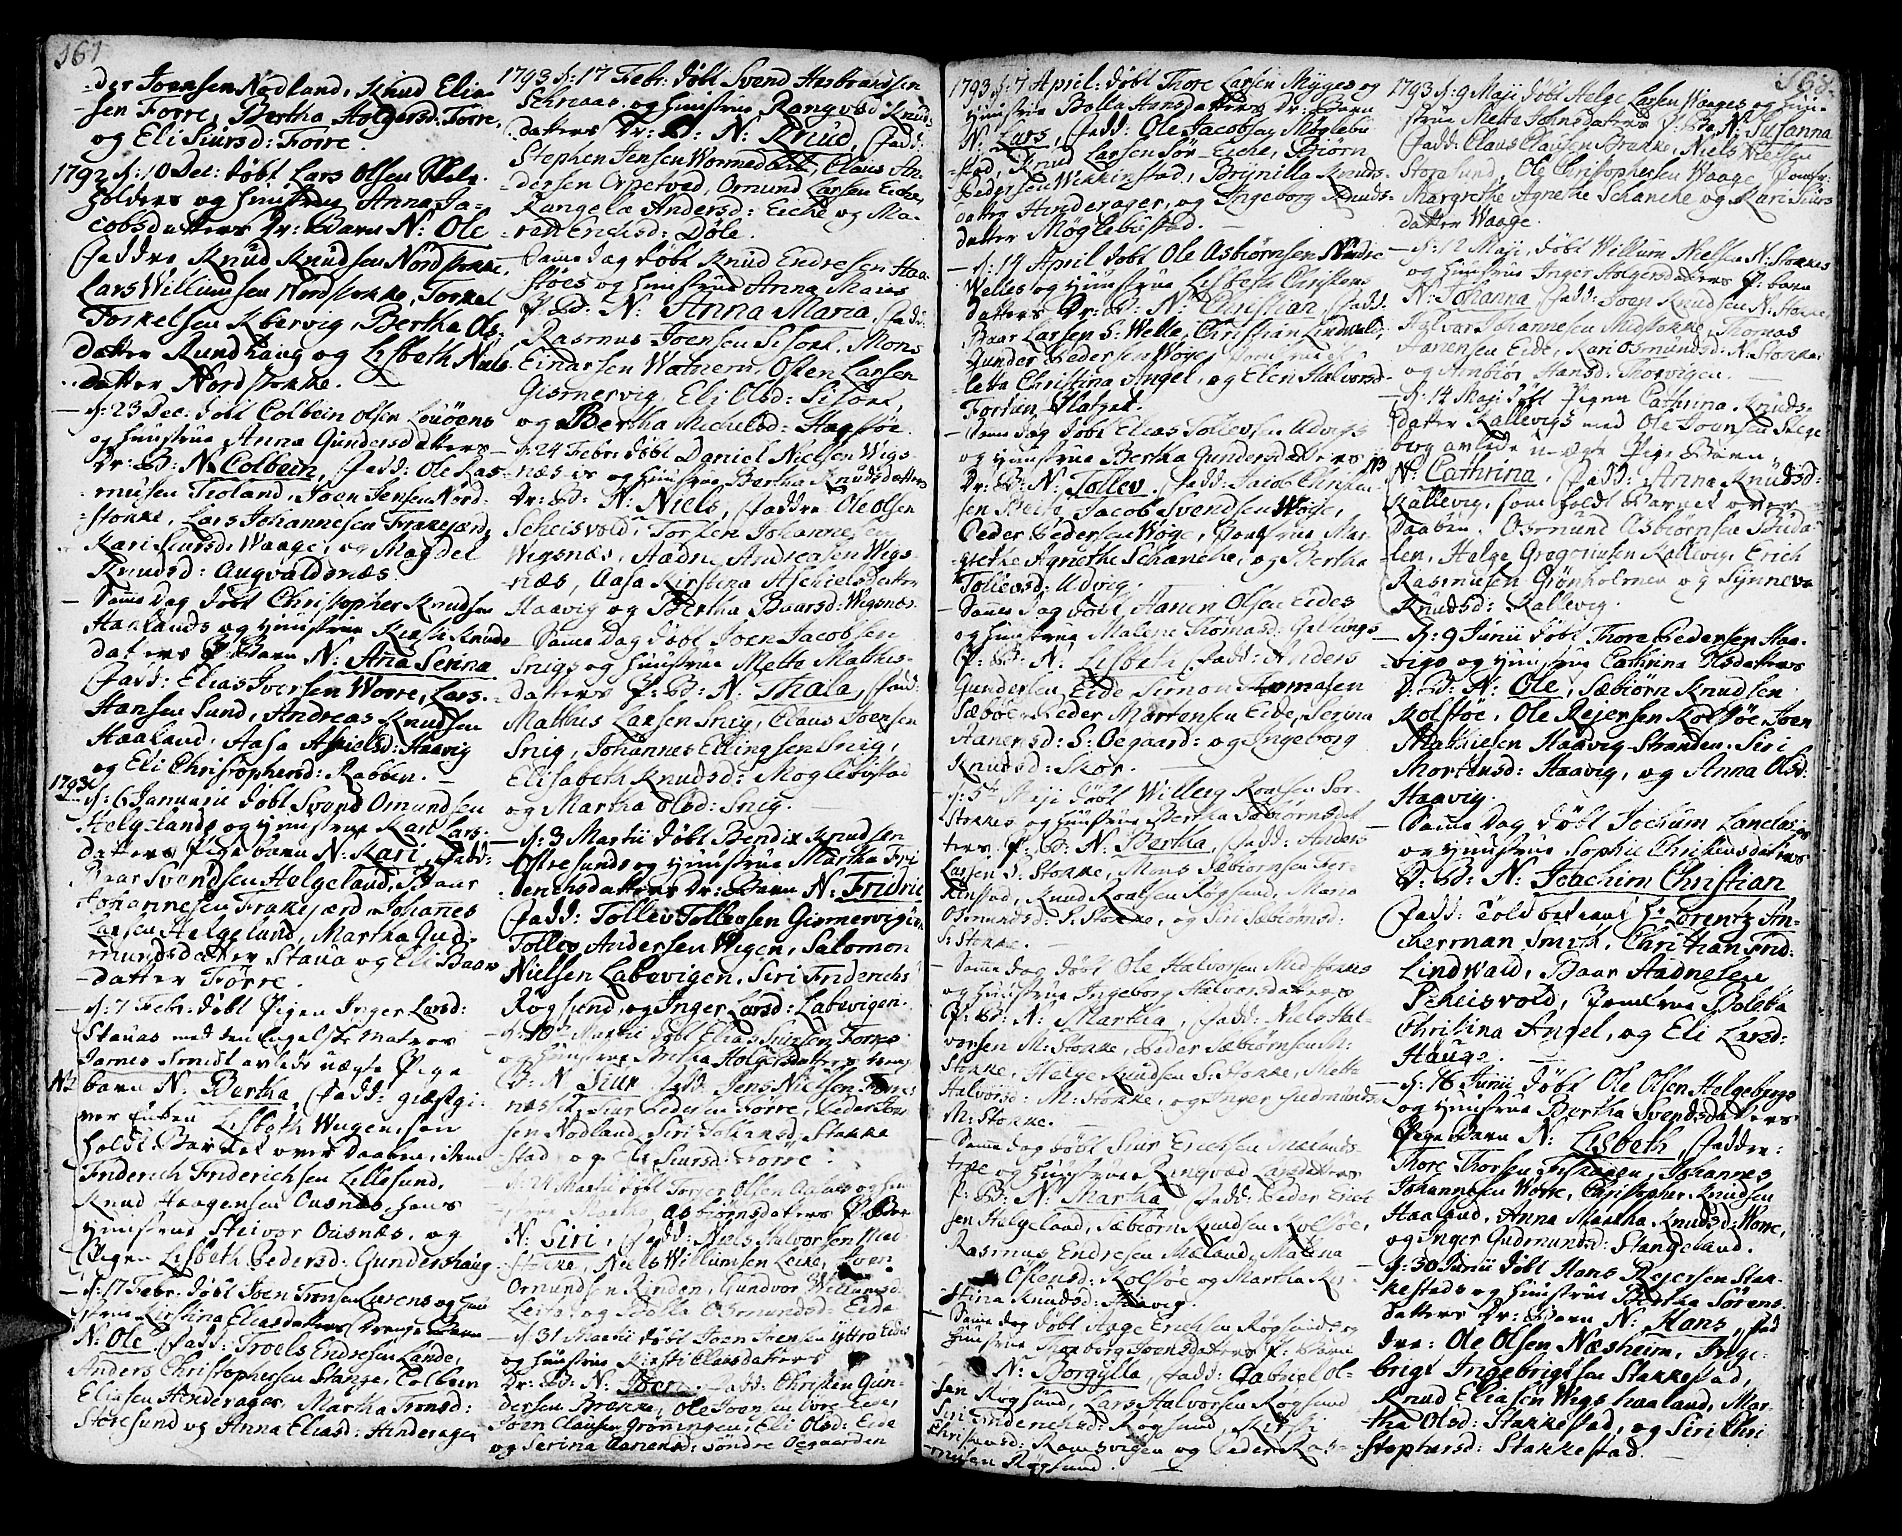 167
der Joensen Nødland, Knud Elia-
sen Førre, Bertha Holgersd: Førre,
og Eli Siursd: Førre.
1792 d: 10 Dec: døbt Lars Olsen
holders og Hustrue Anna Ja-
cobsdatters Dr: Barn N: Ole
Faddre Knud Knudsen Nordstokke,
Lars Willumsen Nordstokke, Torkel
Torkelsen Kbervig, Bertha Ols-
datter Rundhaug og Lisbeth Niels-
datter Nordstokke.
- d: 23 Dec: døbt Colbein Olsen
og Hustrue Anna Gundersdatters
Dr: B: N: Colbein, Fadd: Ole Ras-
musen Tioland, Joen Jensen Nord-
stokke, Lars Johannesen Frakefærd,
Kari Siursd: Waage, og Magdel
Knudsd: Augvaldsnæs.
- Samme Dag døbt Christopher Knudsen
Haalands og Hustrue Kirsti Knuds
datters P: Barn N: Ana Serina
Fadd: Elias Iversen Worre, Lars
Hansen Sund, Andreas Knudsen
Haaland, Aasa Haavig
og Eli Christophersd: Rabben.
1793 d: 6 Januarii døbt Svend Omundsen
Helgelands og Hustrue Kari Lars-
datters Pige barn N: Kari, Fadd:
Baar Svendsen Helgeland, Baar
Johannesen Frakefærd, Johannes
Larsen Helgeland, Martha Gud-
mundsdatter Stava og Eli Baars
datter Førre.
- d: 7 Febr: døbt Pigen Inger Larsd:
Stavas med den Engelske Matros
James avlede uægte Pige
No 2 barn N: Bertha, Fadd: giæstgi-
ver Enken Lisbeth Wugen, som
holdt Barnet over Daaben, item
Friderich Friderichsen Lillesund,
Knud Haagensen Ousnæs, hans
Hustrue Steivor Ousnæs, og
Pigen Lisbeth Pedersd: Gundershaug
- d: 17 Febr: døbt Joen Tronsen og Hus
true Kirstina Eliasdatters Drenge Barn
N: Ole, Fadd: Troels Endresen Lande,
Anders Christophersen Stange, Colbein
Eliasen Hinderager, Martha Tronsd:
Støresund og Anna Eliasd: Hinderager
1793 d: 17 Febr: døbt Svend Hasboardsen
Schraas og Hustrue Rangved Knuds
datters Dr: B: N: Knud, Fadd:
Stephen Jensen Wormedal, Claus An-
dersen Orpetved, Ormund Larsen Eiche,
Rangela Andersd: Eiche og Ma-
reth Erichsd: Døle.
- Same Dag døbt Knud Endresen Haa-
støes og Hustrue Anna Maries
P: B: N: Anna Maria, Fadd:
Rasmus Joensen Sistoke, Mons
Einarsen Watnem, Osten Larsen
Gismervig, Eli Olsd: Sistoke,
og Bertha Michelsd: Haastøe.
- d: 24 Febr: døbt Daniel Nielsen Wigs-
næs og Hustrue Bertha Knudsdatters
Dr: B: N: Niels, Faddre: Ole Olsen
Scheisvold, Torsten Johannesen
Wigsnæs, Aadne Andreasen Wigs-
næs, Aasa Kirstina Aschielsdatter
Haavig og Bertha Baarsd: Wigsnæs.
- Samme Dag døbt Joen Jacobsen
Snigs og Hustrue Mette Mathias-
datters P: B: N: Thala, Fadd:
Mathias Larsen Snig, Claus Joensen
Snig, Johannes Ellingsen Snig,
Elisabeth Knudsd: Møglebustad
og Martha Olsd: Snig.
- d: 3 Martii døbt Bendix Knudsen
Østresunds og Hustrue Martha Fri
derichsdatters Dr: Barn N: Fridric
Fadd: Tollev Tollevsen Gismervigen
Tollev Andersen Wigen, Salomon
Nielsen Labevigen, Siri Friderichs
Røgsund, og Inger Larsd: Labevigen.
- d: 10de Martii døbt Elias Siursen Førres
og Hustrue Bertha Holgersdatters
B: N: Siur Fadd: Jens Nielsen
Siur Pedersen Førre, Peder Joen
sen Nødland, Siri Stakke
stad og Eli Siursd: Førre.
- d: 24 Martii døbt Torger Olsen og Hu
strue Martha Asbiørnsdatters P: Barn
N: Siri, Fadd: Niels Halvorsen Mid
stokke, Niels Willumsen Leite, Iver
Omundsen Rinden, Gundvor Willumsd:
Leite og Bolla Osmundsd: Eide
- d: 31 Martii døbt Joen Joensen yttre Eides
og Hustrue Kirsti Clausdatters
Dr: B: N: Joen, Fadd: Christen Gun-
dersen Brække, Ole Joensen Eide,
Joen Clausen Grønningen, Eli Olsd: Eide
og Serina Aanensd: søndre Oegaarden
1793 d: 7 April: døbt Thore Larsen Mygges og
Hustrue Bolla Hansdatters Dr: Barn
N: Lars, Fadd: Ole Jacobsen Møglebu
stad, Knud Larsen Sør-Eiche, Biørn
Pedersen Wikkinstad, Brynilla Knuds-
datter Hinderager, og Ingeborg Knuds-
datter Møglebustad.
- d: 14 April døbt Ole Osbiørnsen Nordre
Welles og Hustrue Lisbeth Christens
datters Dr: B: N: Christian, Fadd:
Baar Larsen S: Welle, Christian Lindvald,
Gunder Pedersen Wøge, Jomfrue
letta Christina Angel, og Elen Halvorsd
Fortun Hatget.
- Samme Dag døbt Elias Tollevsen Udvigs
og Hustrue Bertha Gundersdatters
Dr: B: N: Tollev, Fadd: Jacob Christen
sen Jacob Svendsen Wøge,
Peder Pedersen Wøge, Jomfrue Mar-
grethe Agnethe Schanche, og Bertha
Tollevsd: Udvig.
- Samme Dag døbt Aanen Olsen Eides
og Hustrue Malene Thomasd:
P: B: N: Lisbeth, Fadd: Anders
Gundersen, Eide Simon Tormosen
Sæbøe, Peder Mortensen Eide, Serina
Aanensd: S: Oegaard: og Ingeborg
Knudsd: Skor.
- d: 5te Maji døbt Willers Roalsen Sør-
Stokkes og Hustrue Bertha Sæbiørnsdat
ters P: B: N: Bertha, Fadd: Anders
Larsen S: Stokke, Mons Sæbiørnsen
Knud Roalsen Røgsund, Maria
Osmundsd: S: Stokke, og Siri Sæbiørnsd:
S: Stokke.
- Samme Dag døbt Ole Halvorsen Midstokkes
og Hustrue Ingeborg Halvorsdatters
P: B: N: Martha, Fadd: Niels Hal-
vorsen M: Stokke, Peder Sæbiørnsen M:
Stokke, Helge Knudsen S: Stokke, Mette
Halvorsd: M: Stokke, og Inger Gudmunds:
M: Stokke.
- Samme Dag døbt Siur Erichsen
og Hustrue Ringved Larsdatters
P: B: N: Martha, Fadd: Peder
sen Helgeland, Sæbiørn Knudsen Kolstøe,
Rasmus Endresen Mæland, Malena
Ostensd: Kolstøe og Martha Kir-
stina Knudsd: Haavig.
- Same dag døbt Aage Erichsen Røgsund og
Hustrue Tharborg Joensdatters P: Barn
N: Borgylla, Fadd: Gabriel Ol-
sen Røgsund, Lars Halvorsen Røgsund
Siri Friderichsd: Røgsund, Kirsti
Christensd: Ramsvigen og Peder Ras-
musen Røgsund.
168
1793 d: 9 Maji døbt Helge Larsen Waages og Hu-
strue Mette Joensdatters P: B: N: Susanna
Fadd: Claus Clausen Brække, Niels Nielsen
Storesund, Ole Christophersen Waage, Jomfr:
Margrethe Agnethe Schanche og Kari Siurs
datter Waage.
- d: 12 Maji, døbt Willum Nielsen N: Stokkes
og Hustrue Inger Holgersdatters P: barn
N: Johanna, Fadd: Joen Knudsen N: Stokke,
Halvar Johannesen Midstokke, Thomas
Aanensen Eide, Kari Osmundsd: N: Stokke
og Anbiør Hansd: Thorvigen.
- d: 14 Maji døbt Pigen Cathrina Knuds-
datter Kallevigs med Ole Joensen Helge
berg avlede u-ægte Pige Barn,
N3 N: Cathrina, Fadd: Anna Knudsd:
Kallevig, som holdt Barnet over
Daaben, Osmund Asbiørnsen
len, Helge Gregoriusen Kallevig, Erich
Rasmusen Grønholmen og Synneva
Knudsd: Kallevig.
- d: 9 Junii døbt Thore Pedersen Haa-
vigs og Hustrue Cathrina Olsdatters
D: B: N: Ole, Sæbiørn Knudsen
Kolstøe, Ole Reiersen Kolstøe, Joen
Mathiesen Haavig-Stranden, Siri
Mortensd: Haavig, og Anna Olsd:
Haavig.
- Samme Dag døbt Jochum
og Hustrue Sophie Christensdatters
D: B: N: Joachim Christian
Fadd: Toldbetient Hr: Lorentz An-
cherman Smith, Christian Frid:
Lindvald, Baar Aadnesen
Scheisvold, Jomfrue Bolette
Christina Angel, og Eli Larsd:
Hauge.
- d: 16 Junii døbt Ole Olsen Helgebergs
og Hustrue Bertha Svendsdatters
Pige Barn N: Lisbeth, Fadder:
Thore Thorsen Johannes
Johannesen Worre, Christopher Knudsen
Haaland, Anna Martha Knudsd: Worre,
og Inger Gudmundsd: Stangeland.
- d: 30 Junii døbt Hans Reiersen Stak-
kestads og Hustrue Bertha Sørens-
datters Dr: Barn N: Hans, Fad
dre: Ole Olsen Næsheim, Inge-
brigt Ingebrigtsen Stakkestad,
Knud Eliasen Wigshaaland, Mar-
tha Olsd: Stakkestad, og Siri Chri
stophersd: Stakkestad.